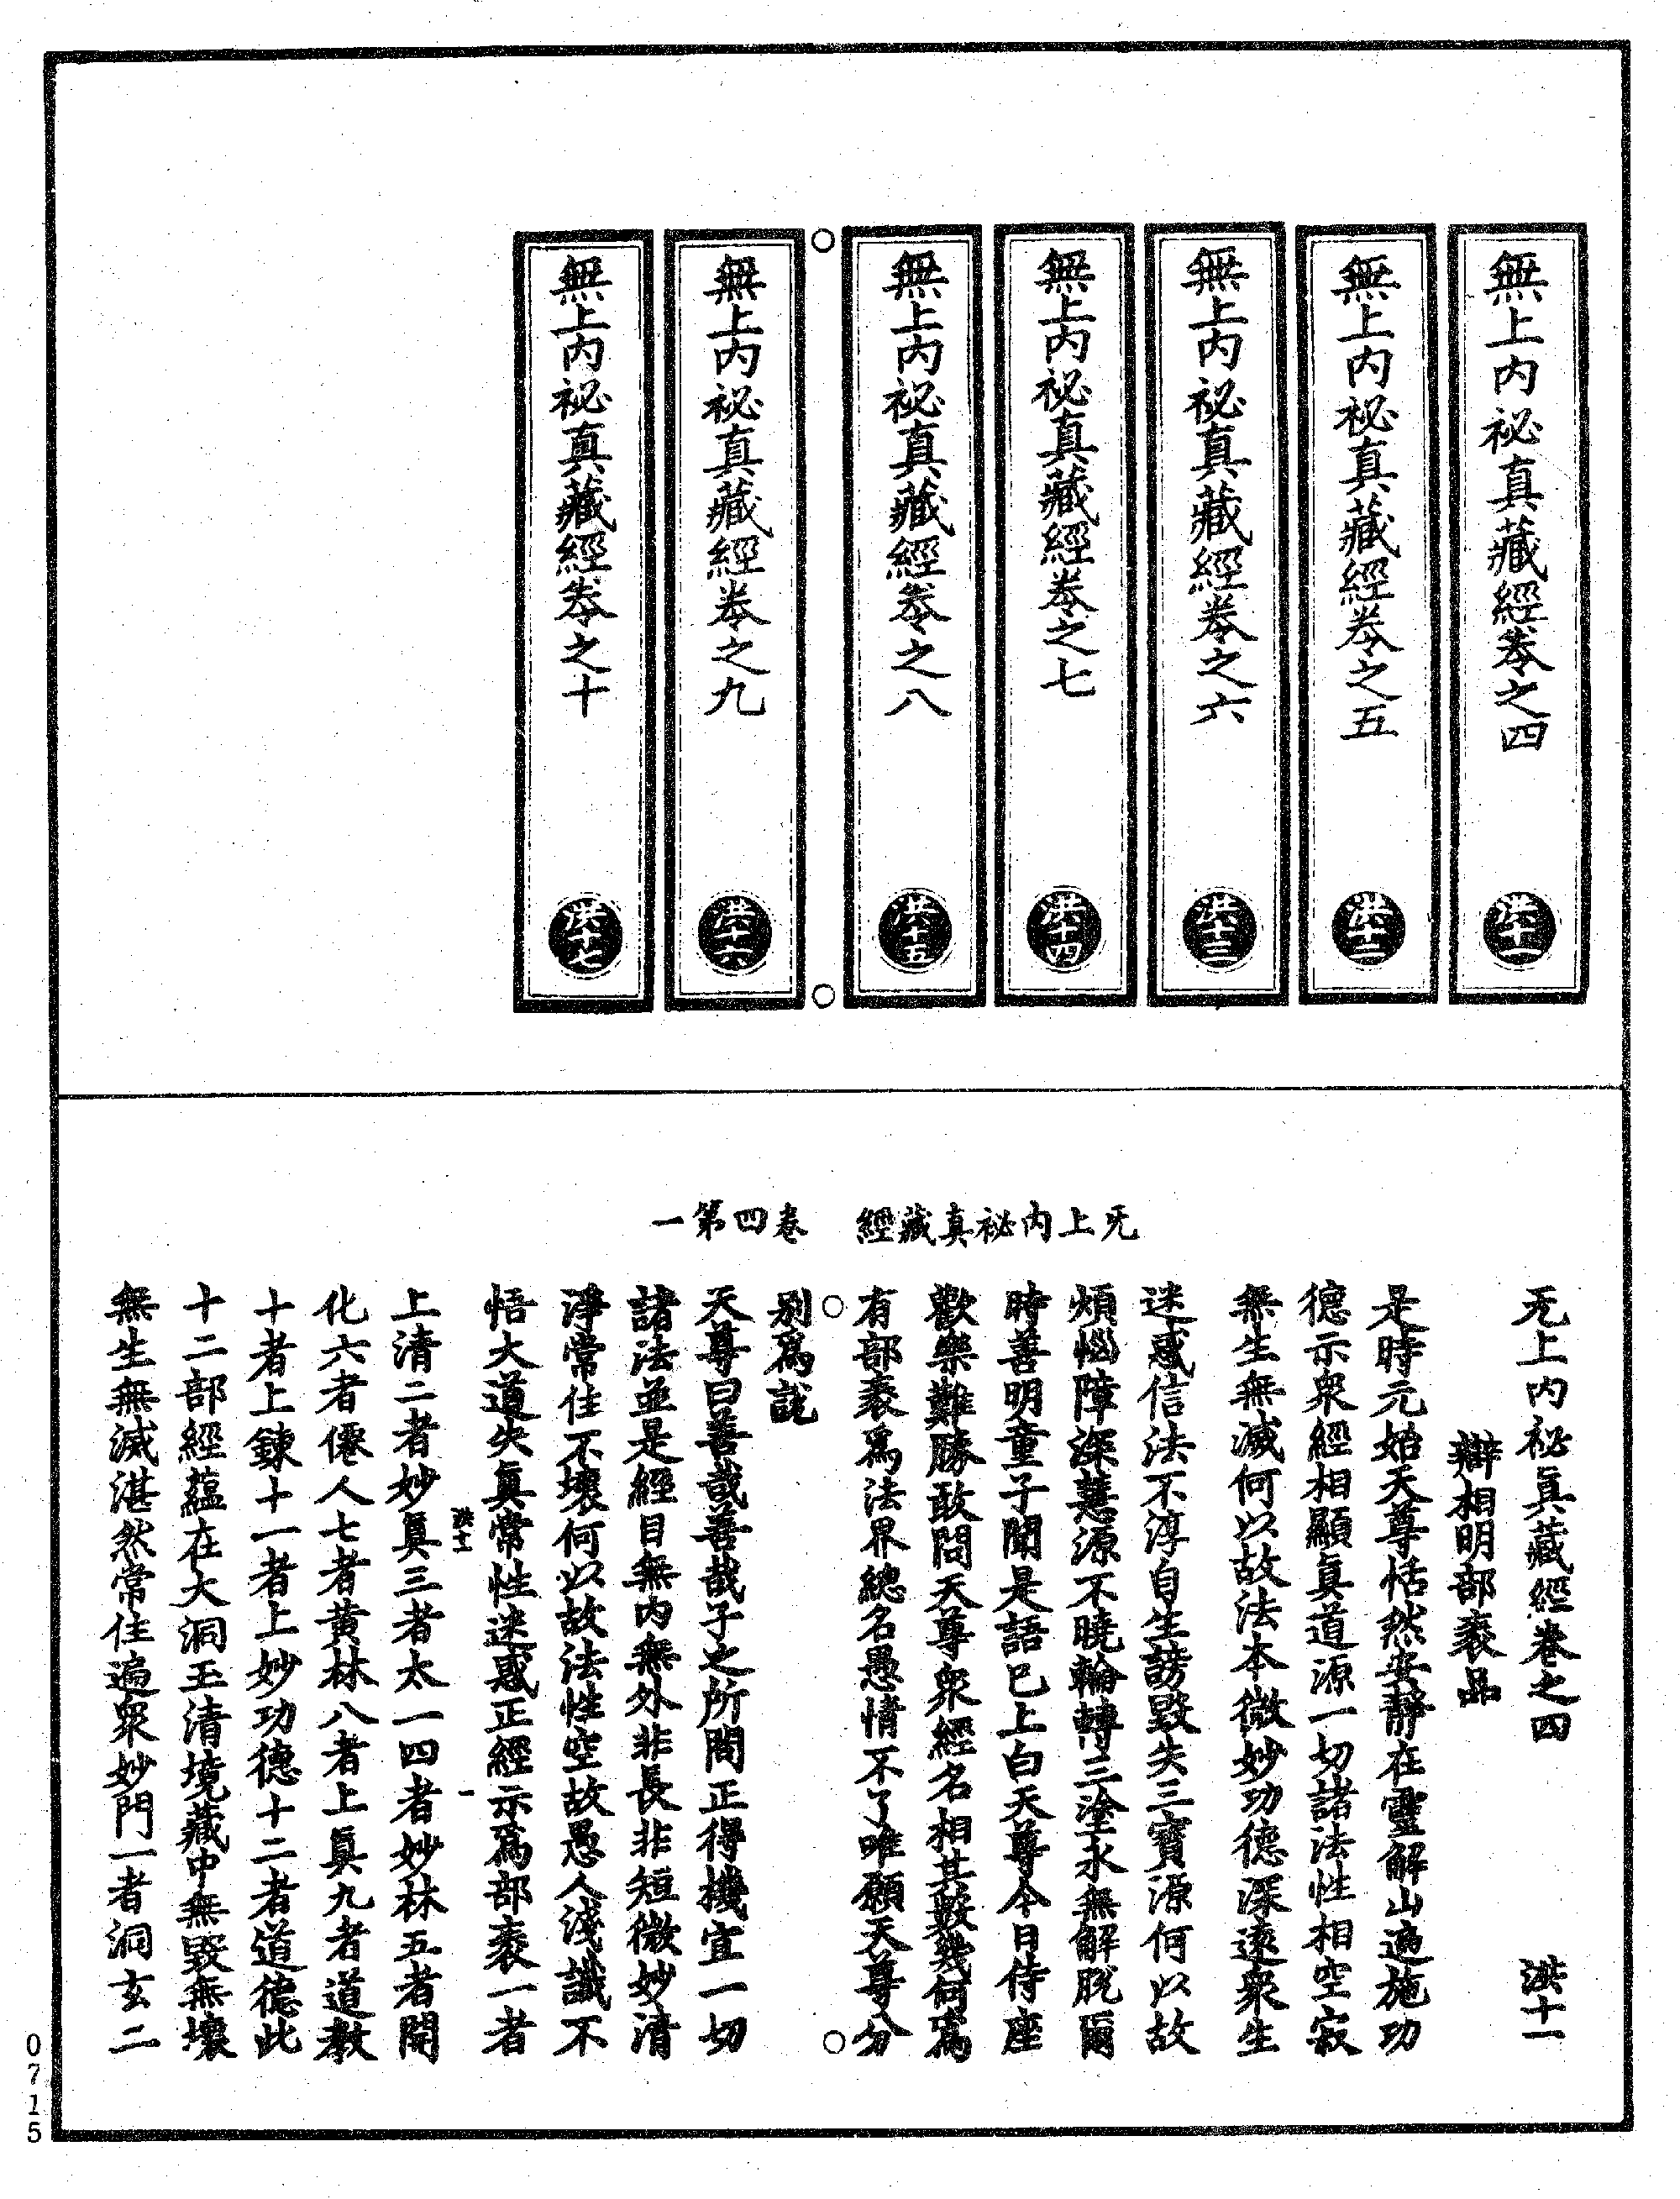 無上内祕真藏經卷之四
洪十一
無上内祕真藏經卷之五
洪十二
無上内祕真藏經卷之六
洪十三
無上内祕真藏經卷之七
洪十四
無上内祕真藏經卷之八
洪十五
無上内祕真藏經卷之九
洪十六
無上内祕真藏經卷之十
洪十七
无上内祕真藏經 卷四第一
无上内祕眞藏經卷之四 洪十一
辯相明部袠品
是時元始天尊恬然安靜在靈解山遍施功
德示衆經相顯眞道源一切諸法性相空寂
無生無滅何以故法本微妙功德深遠衆生
迷惑信法不淳自生謗毀失三寶源何以故
煩惱障深慧源不曉輪轉三塗永無解脫爾
時善明童子聞是語已上白天尊今日侍座
歡樂難勝敢問天尊衆經名相其數幾何爲
有部袠爲法界總名愚情不了唯願天尊分
别爲說
天尊曰善哉善哉子之所問正得機宜一切
諸法並是經目無内無外非長非短微妙清
淨常住不壞何以故法性空故愚人淺識不
悟大道失眞常性迷惑正經示爲部袠一者
洪十一 一
上清二者妙眞三者太一四者妙林五者開
化六者僊人七者黄林八者上眞九者道教
十者上鍊十一者上妙功德十二者道德此
十二部經蘊在大洞玉清境藏中無毀無壞
無生無滅湛然常住遍衆妙門一者洞玄二
0715